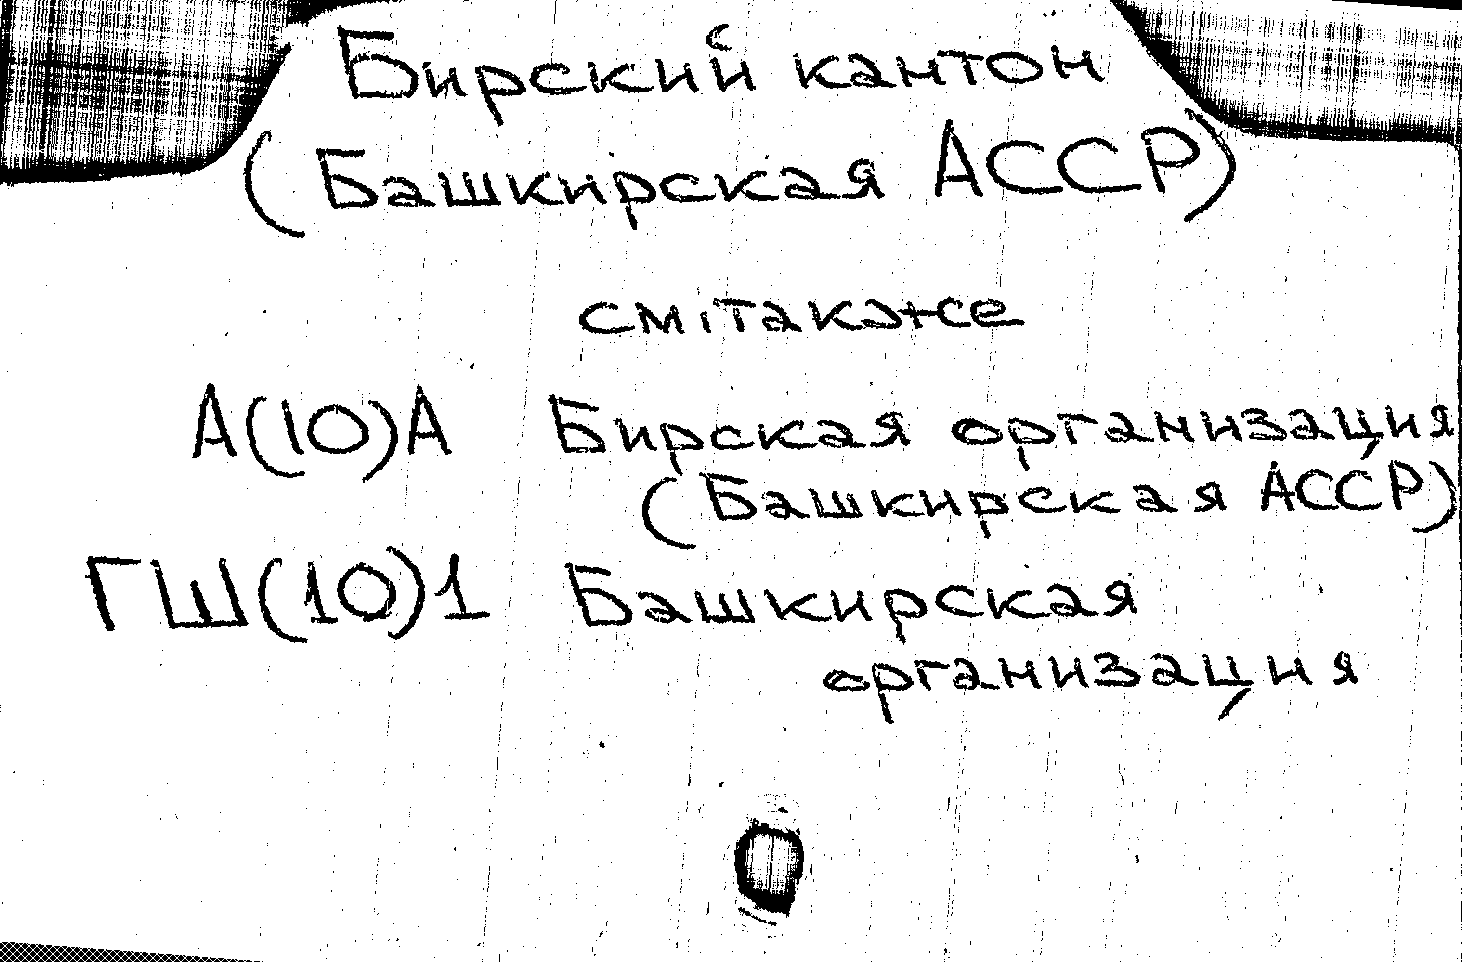 Бирский кантон
(Башкирская АССР)
см. также
А(10)А Бирская организация
(Башкирская АССР)
ГШ(10)1 Башкирская
организация